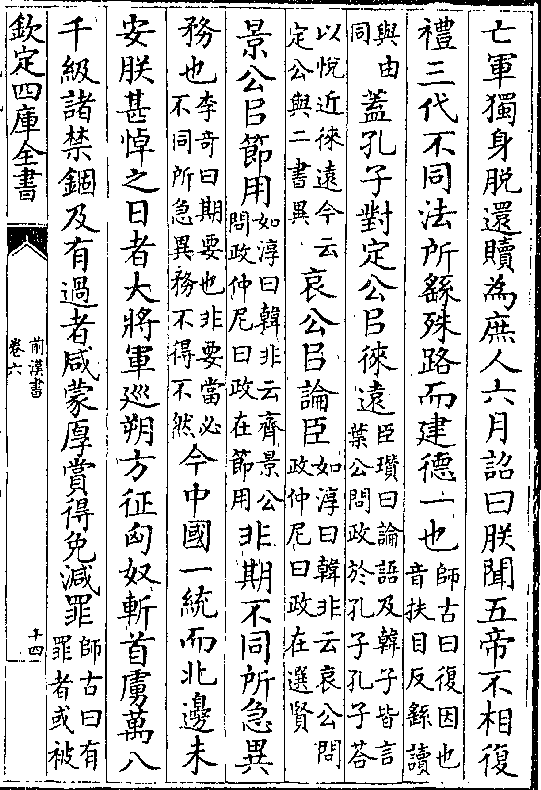 亡軍獨身脱還贖為庶人六月詔曰朕聞五帝不相復
禮三代不同法所繇殊路而建德一也師古曰復因也音扶目反繇讀
與由同蓋孔子對定公㠯徠遠臣瓚曰論語及韓子皆言葉公問政於孔子孔子答
以悅近徠遠今云定公與二書異哀公㠯論臣如淳曰韓非云哀公問政仲尼曰政在選賢
景公㠯節用如淳曰韓非云齊景公問政仲尼曰政在節用非期不同所急異
務也李奇曰期要也非要當必不同所急異務不得不然今中國一統而北邊未
安朕甚悼之日者大將軍巡朔方征匈奴斬首虜萬八
千級諸禁錮及有過者咸蒙厚賞得免減罪師古曰有罪者或被
欽定四庫全書
前漢書
卷六
十四